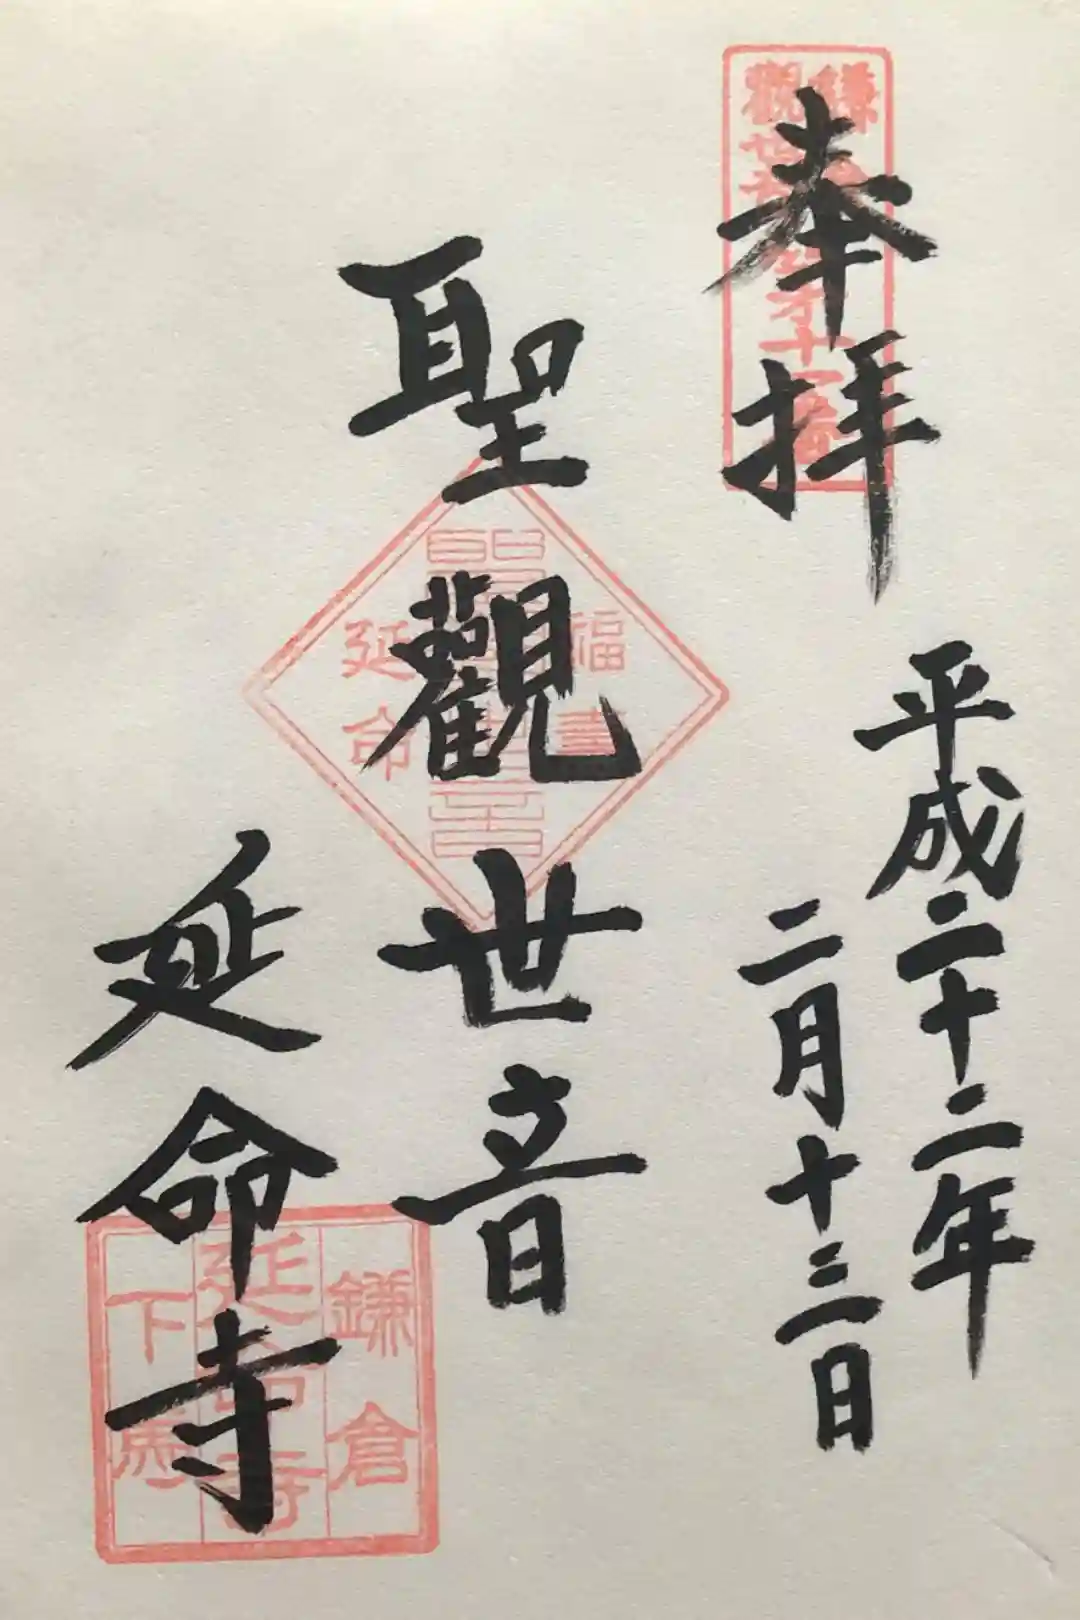 奉拝
平成二十二年
二月十三日
聖觀世音
延命寺
福壽
延命
鎌倉
延命寺
下馬